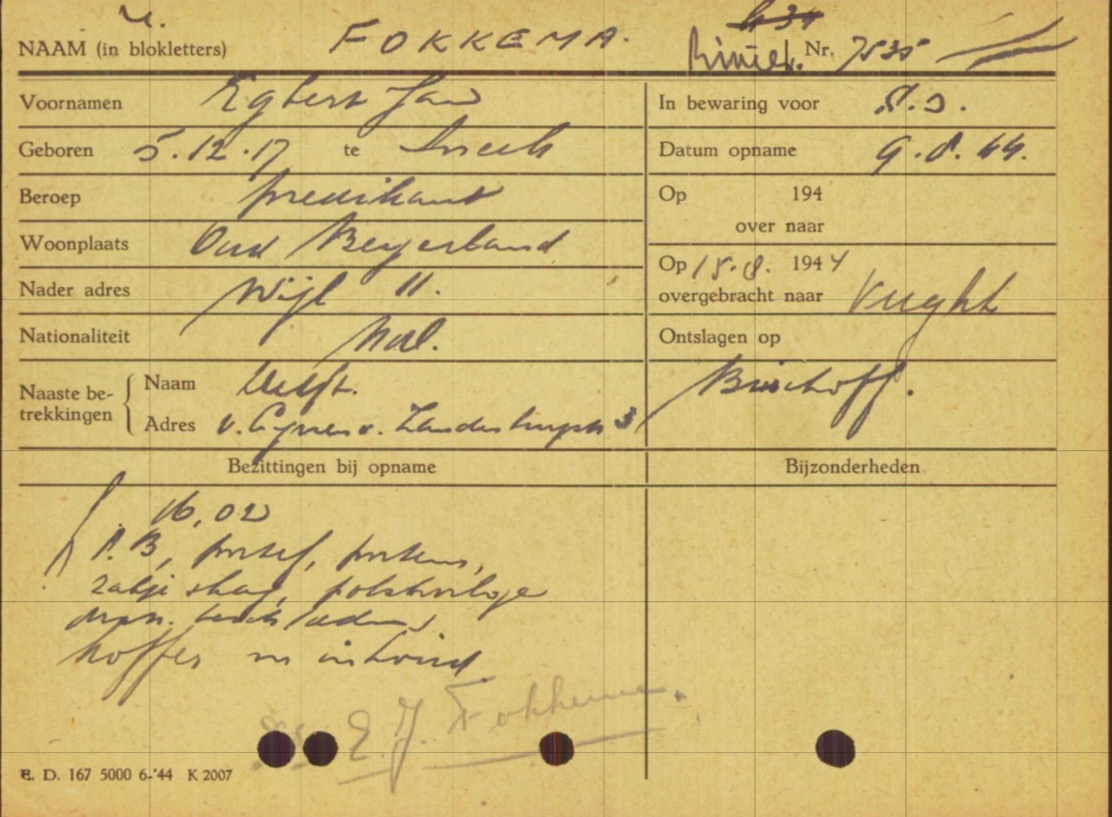 NAAM (in blokletters) FOKKEMA. Nr. 7535
Voornamen Egbert Jan
In bewaring voor S.D.
Geboren 5.12.17 te Sneek
Datum opname 9.8.44.
Beroep predikant
Op 194
over naar
Woonplaats Oud Beyerland
Op 15.8. 1944
overgebracht naar Vught
Nader adres 11.
Nationaliteit Ned.
Ontslagen op
Naaste betrekkingen
Naam Delft.
Bischoff.
Adres v. 3
Bezittingen bij opname
Bijzonderheden
16,02
P.B, portef, portem,
zakje shag, polshorloge
koffer m inhoud
E.J. Fokkema.
E. D. 167 5000 6-'44 K 2007